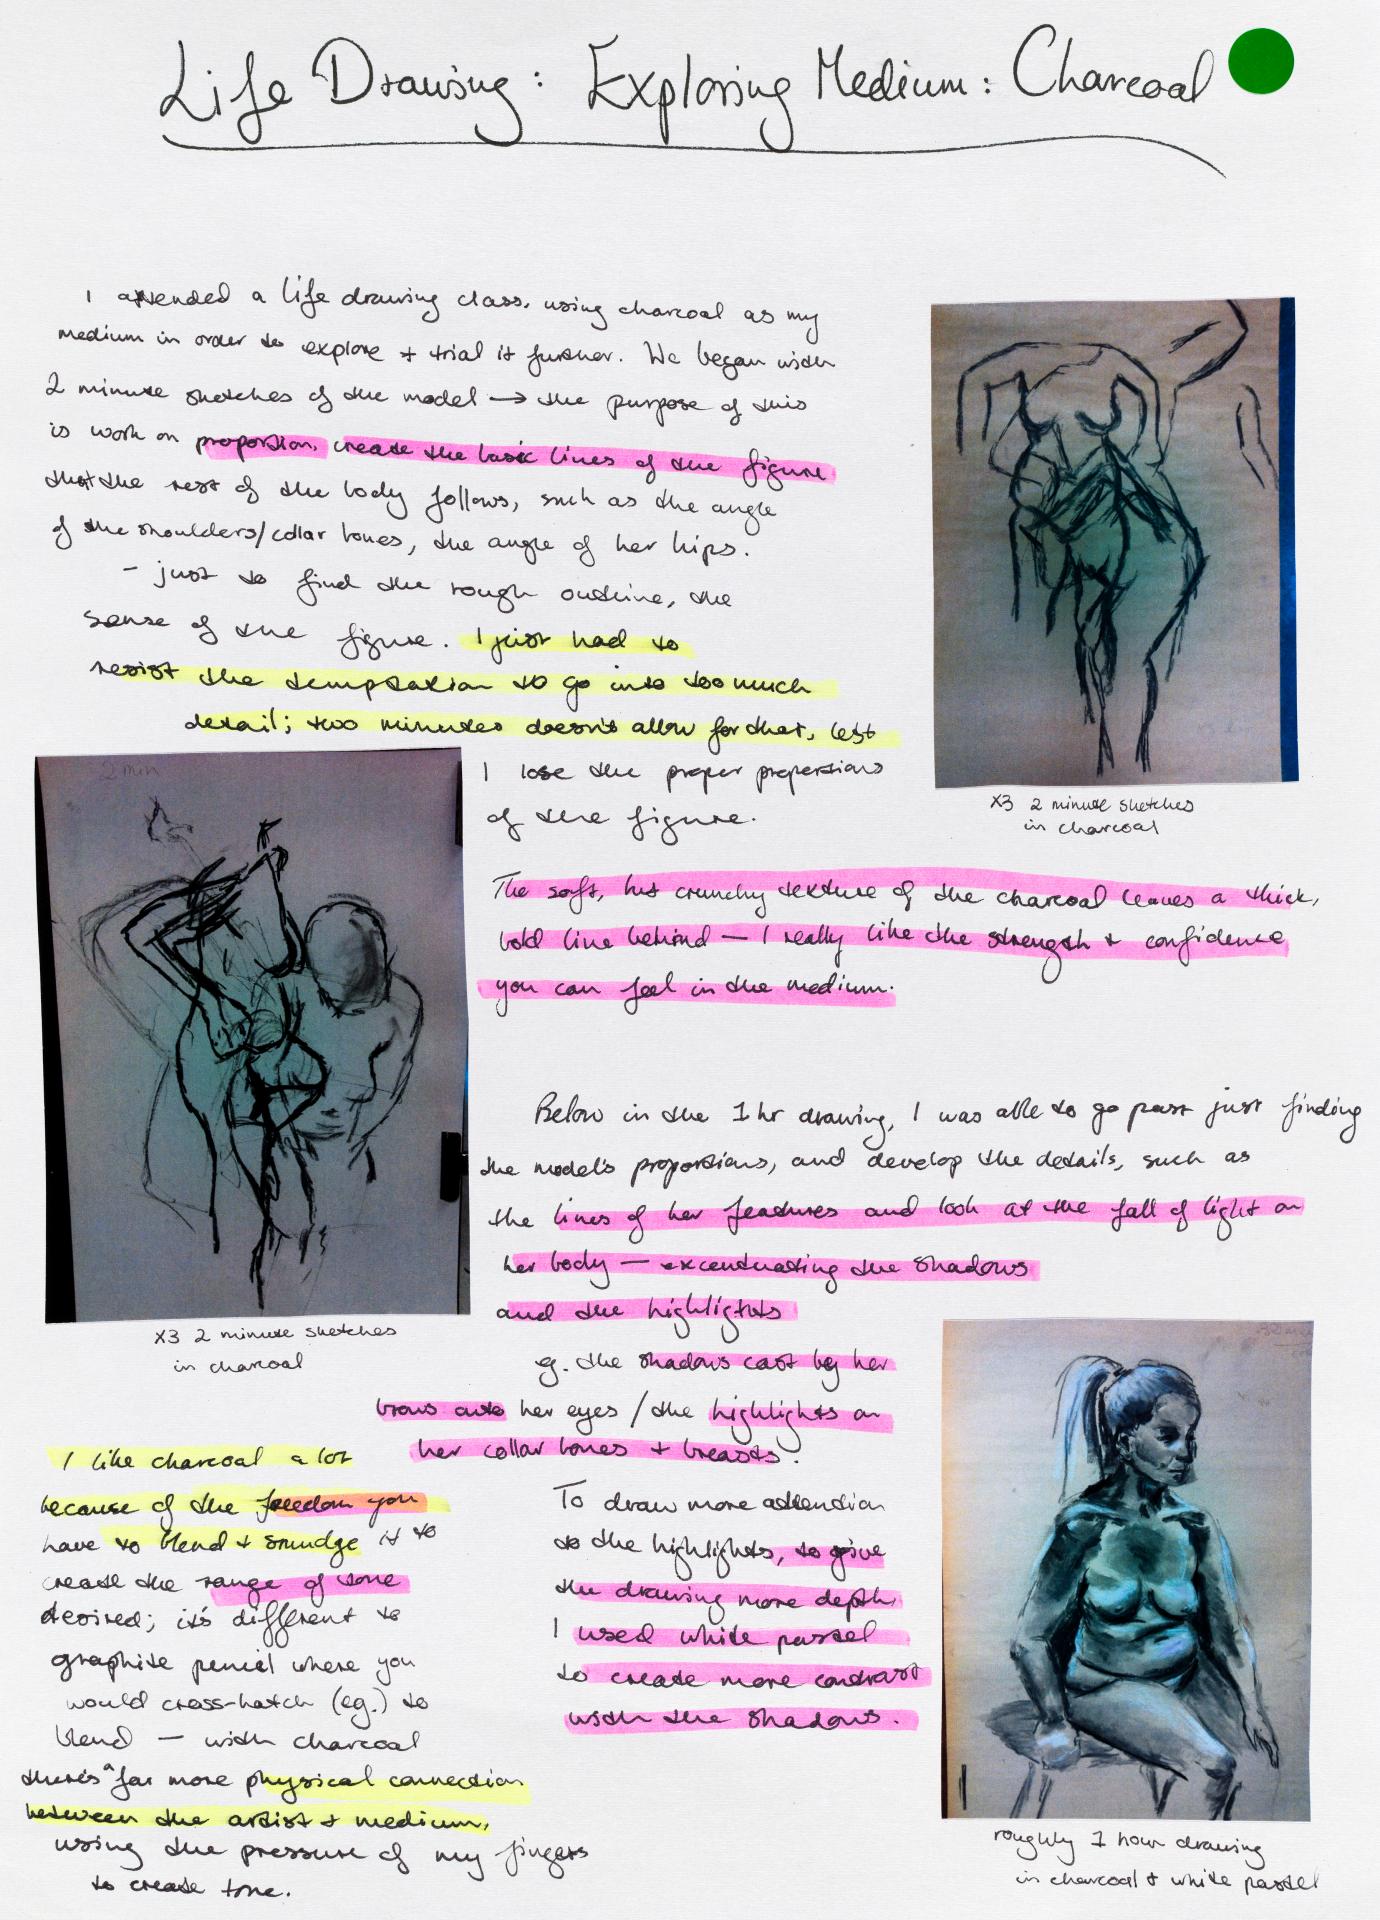 Life Drawing: Exploring Medium: Charcoal
I attended a life drawing class, using charcoal as my
medium in order to explore + trial it further. We began with
2 minute sketches of the model → the purpose of this
is work on proportion, create the basic lines of the figure
that the rest of the body follows, such as the angle
of the shoulders/collar bones, the angle of her hips.
- just to find the rough outline, the
sense of the figure. I just had to
resist the temptation to go into too much
detail; two minutes doesn't allow for that, lest
I lose the proper proportions
of the figure.
X3 2 minute sketches
in charcoal
2 min
X3 2 minute sketches
in charcoal
The soft, but crunchy texture of the charcoal leaves a thick,
bold line behind — I really like the strength + confidence
you can feel in the medium.
Below in the 1 hr drawing, I was able to go past just finding
the model's proportions, and develop the details, such as
the lines of her features and look at the fall of light on
her body — excentuating the shadows
and the highlights
eg. the shadows cast by her
brows onto her eyes / the highlights on
her collar bones + breasts.
To draw more attention
to the highlights, to give
the drawing more depth,
I used white pastel
to create more contrast
with the shadows.
I like charcoal a lot
because of the freedom you
have to blend + smudge it to
create the range of tone
desired; it's different to
graphite pencil where you
would cross-hatch (eg.) to
blend — with charcoal
there's a far more physical connection
between the artist + medium,
using the pressure of my fingers
to create tone.
roughly 1 hour drawing
in charcoal + white pastel